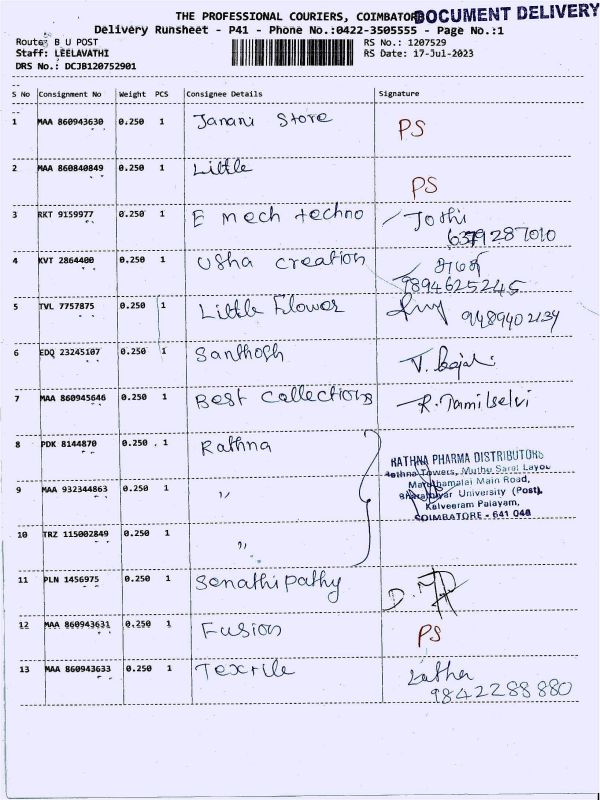 THE PROFESSIONAL COURIERS, COIMBATOR
DOCUMENT DELIVERY
Delivery Runsheet - P41 - Phone No.:0422-3505555 - Page No.:1
Route: B U POST
RS No.: 1207529
Staff: LEELAVATHI
RS Date: 17-Jul-2023
DRS No.: DCJB120752901
S No Consignment No Weight PCS Consignee Details Signature
1 MAA 860943630 0.250 1 Janani Store PS
2 MAA 860840849 0.250 1 Little PS
3 RKT 9159977 0.250 1 E mech techno Jothi
6379287010
4 KVT 2864400 0.250 1 Usha creation
9894625245
5 TVL 7757875 0.250 1 Little Flower 9489402134
6 EDQ 23245107 0.250 1 Santhosh
7 MAA 860945646 0.250 1 Best Collections R. Tamilselvi
8 PDK 8144870 0.250 1 Rathna
RATHNA PHARMA DISTRIBUTORS
Rathna Towers, Muthu Sarai Layou
9 MAA 932344863 0.250 1 "
Maruthamalai Main Road,
Bharathiyar University (Post),
Kalveeram Palayam,
COIMBATORE - 641 046
10 TRZ 115002849 0.250 1 "
11 PLN 1456975 0.250 1 Senathipathy
12 MAA 860943631 0.250 1 Fusion PS
13 MAA 860943633 0.250 1 Textile Latha
9842288880